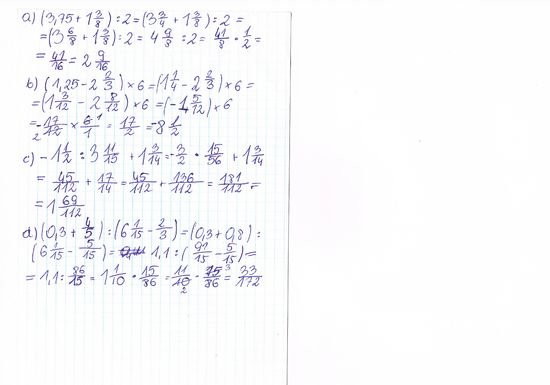 a) (3,75 + 1 3/8) : 2 = (3 3/4 + 1 3/8) : 2 =
= (3 6/8 + 1 3/8) : 2 = 4 9/8 : 2 = 41/8 · 1/2 =
= 41/16 = 2 9/16
b) (1,25 - 2 2/3) × 6 = (1 1/4 - 2 2/3) × 6 =
= (1 3/12 - 2 8/12) × 6 = (-1 5/12) × 6
= -17/12 × 6/1 = 17/2 = -8 1/2
c) -1 1/2 : 3 11/15 + 1 3/14 = -3/2 · 15/56 + 1 3/14
= 45/112 + 17/14 = 45/112 + 136/112 = 181/112 =
= 1 69/112
d) (0,3 + 4/5) : (6 1/15 - 2/3) = (0,3 + 0,8) :
(6 1/15 - 5/15) = 1,1 : (91/15 - 5/15) =
= 1,1 : 86/15 = 1 1/10 · 15/86 = 11/10 · 15/86 = 33/172